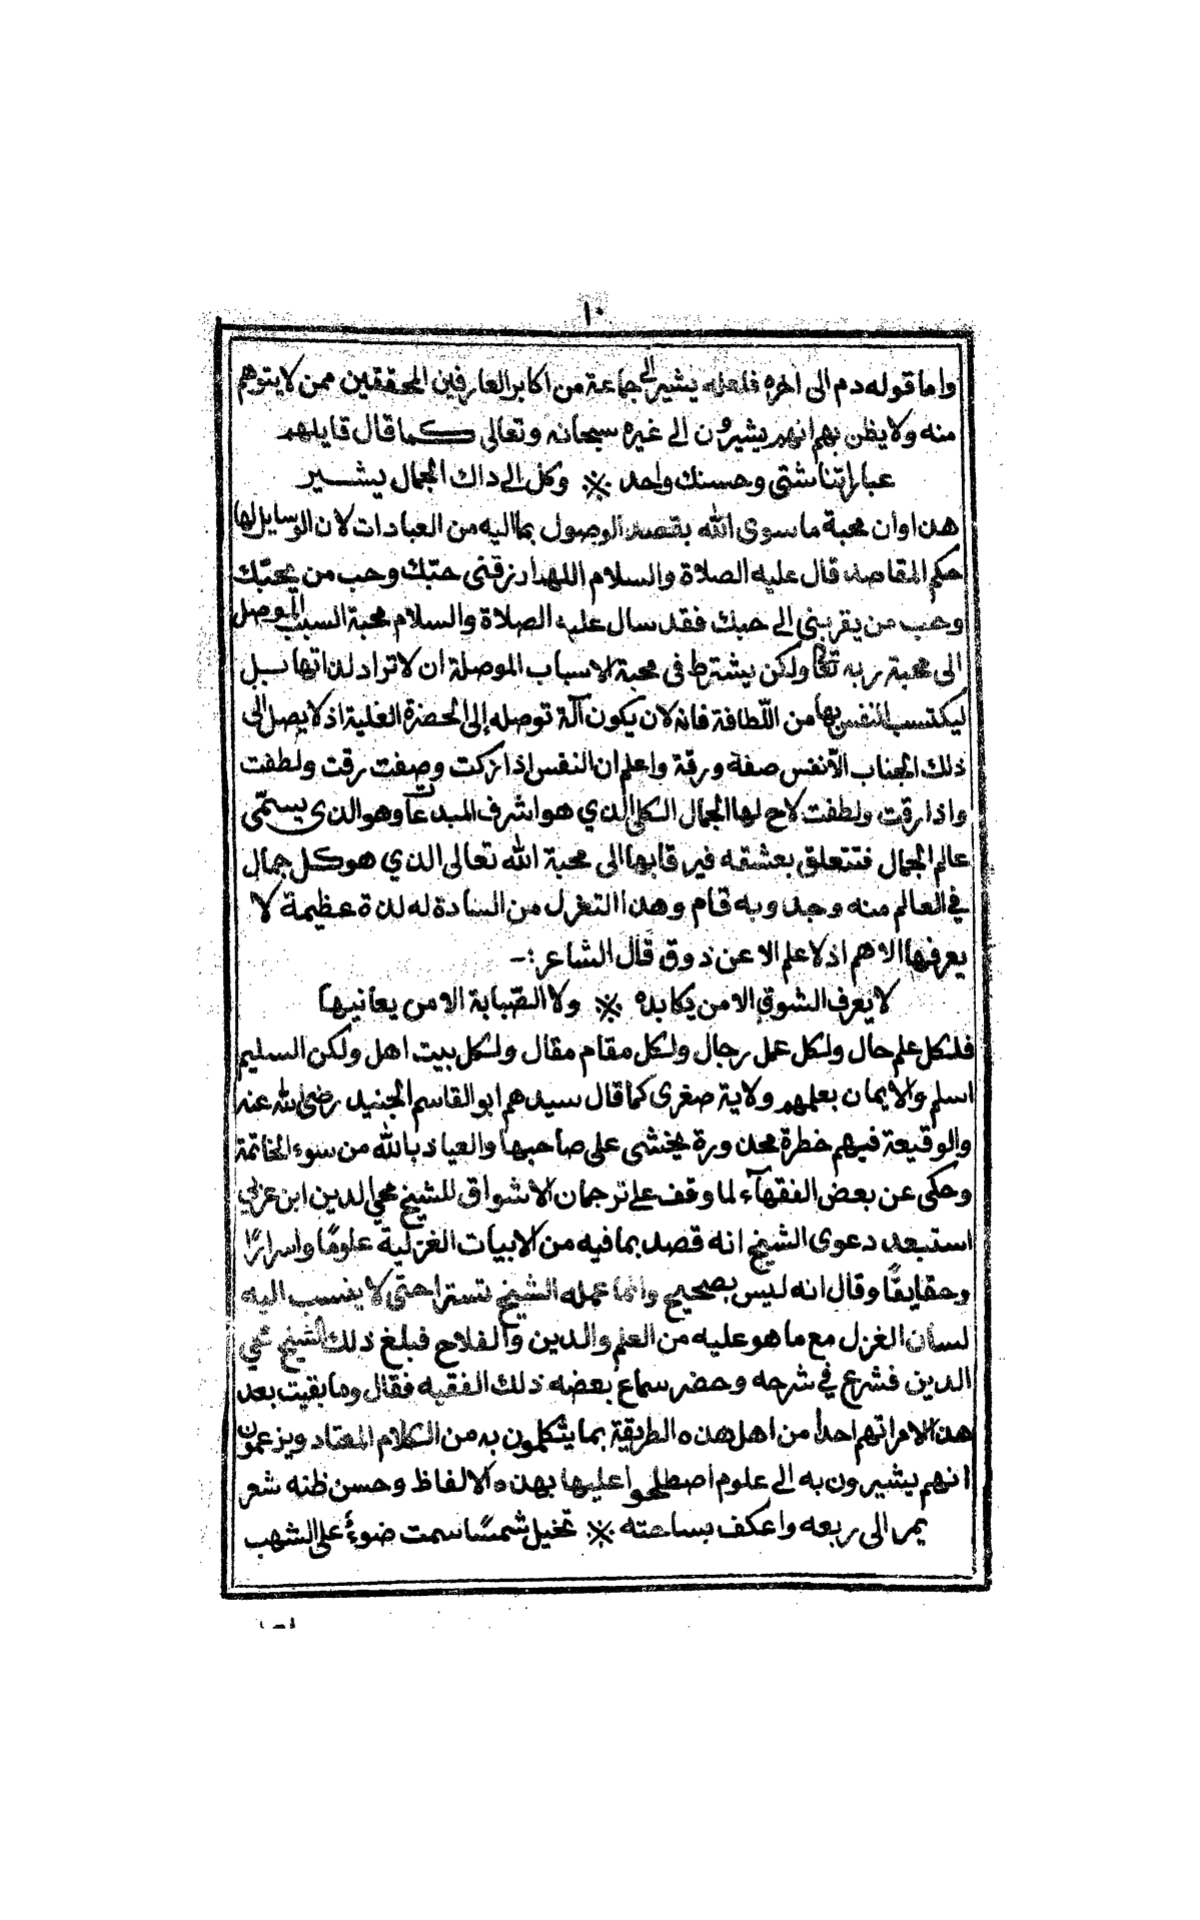 ١٠
واما قوله دم الى اخره فلعله يشير الى جماعة من اكابر العارفين المحققين ممن لا يتوهم
منه ولا يظن بهم انهم يشيرون الى غيره سبحانه وتعالى كما قال قايلهم
عباراتنا شتى وحسنك واحد ※ وكل الى ذاك الجمال يشير
هذا وان محبة ما سوى الله بقصد الوصول بما اليه من العبادات لان الوسايل لها
حكم المقاصد قال عليه الصلاة والسلام اللهم ارزقنى حبّك وحب من يحبّك
وحب من يقربنى الى حبك فقد سال عليه الصلاة والسلام محبة السبب الموصل
الى محبة ربه تعالى ولكن يشترط فى محبة الاسباب الموصلة ان لا تراد لذاتها بل
ليكتسب النفس بها من اللّطافة فانه لان يكون آلة توصله إلى الحضرة العلية اذ لا يصل الى
ذلك الجناب الآنفس صفة ورقة واعلم ان النفس اذا زكت وصفت رقت ولطفت
واذا رقت ولطفت لاح لها الجمال الكلى الذي هو اشرف المبدعات وهو الذى يسمّى
عالم الجمال فتتعلق بعشقه فيرقابها الى محبة الله تعالى الذي هو كل جمال
في العالم منه وجد وبه قام وهذا التغزل من السادة له لذة عظيمة لا
يعرفها الا هم اذ لا علم الا عن ذوق قال الشاعر :-
لا يعرف الشوق الا من يكابده ※ ولا الصّبابة الا من يعانيها
فلكل علم حال ولكل عمل رجال ولكل مقام مقال ولكل بيت اهل ولكن السليم
اسلم والايمان بعلمهم ولاية صغرى كما قال سيدهم ابو القاسم الجنيد رضى الله عنه
والوقيعة فيهم خطرة محذورة يخشى على صاحبها والعياذ بالله من سوء الخاتمة
وحكى عن بعض الفقهآء لما وقف على ترجمان الاشواق للشيخ محي الدين ابن عربي
استبعد دعوى الشيخ انه قصد بما فيه من الابيات الغزلية علومًا واسرارًا
وحقايقًا وقال انه ليس بصحيح وانما عمله الشيخ تسترا حتى لا ينسب اليه
لسان الغزل مع ما هو عليه من العلم والدين والفلاح فبلغ ذلك الشيخ محي
الدين فشرع في شرحه وحضر سماع بعضه ذلك الفقيه فقال وما بقيت بعد
هذا الامر اتهم احدا من اهل هذه الطريقة بما يتكلمون به من الكلام المعتاد ويزعمون
انهم يشيرون به الى علوم اصطلحوا عليها بهذه الالفاظ وحسن ظنه شعر
يمر الى ربعه واعكف بساحته ※ تخيل شمسًا سمت ضوءً على الشهب